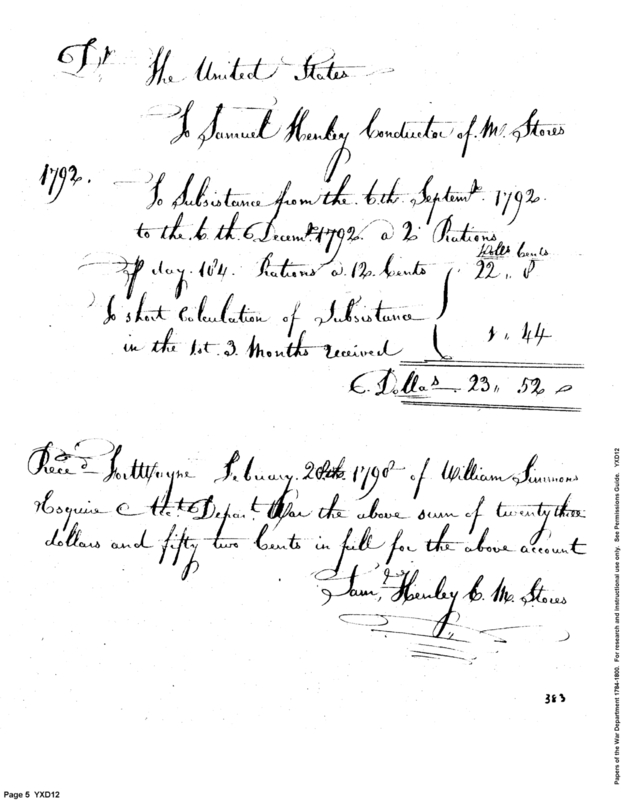 Dr The United States
To Samuel Henley Conductor of M. Stores
1792. To Subsistance from the 6th Septemr. 1792.
to the 6th Decemr. 1792. a 2 Rations
Dolls Cents
p day. 184. Rations a 12 Cents 22 " 8
To short Calculation of Subsistance
in the 1st. 3 Months received 1 " 44
Dollars 23 " 52
Recd Fort Wayne Febuary of William Simmons
Esquire Act. Depart. War the above sum of twenty three
dollars and fifty two Cents in full for the above account
Saml. Henley C. M. Stores
383
Page 5 YXD12
Papers of the War Department 1784-1800. For research and instructional use only. See Permissions Guide. YXD12